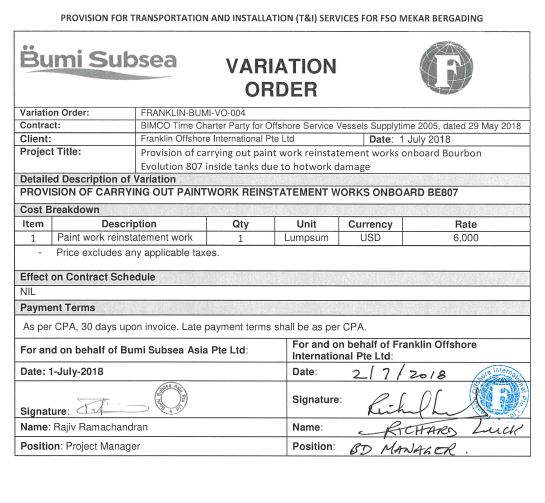 PROVISION FOR TRANSPORTATION AND INSTALLATION (T&I) SERVICES FOR FSO MEKAR BERGADING
Bumi Subsea
VARIATION
ORDER
F
Variation Order: FRANKLIN-BUMI-VO-004
Contract: BIMCO Time Charter Party for Offshore Service Vessels Supplytime 2005, dated 29 May 2018
Client: Franklin Offshore International Pte Ltd Date: 1 July 2018
Project Title: Provision of carrying out paint work reinstatement works onboard Bourbon
Evolution 807 inside tanks due to hotwork damage
Detailed Description of Variation
PROVISION OF CARRYING OUT PAINTWORK REINSTATEMENT WORKS ONBOARD BE807
Cost Breakdown
Item Description Qty Unit Currency Rate
1 Paint work reinstatement work 1 Lumpsum USD 6,000
- Price excludes any applicable taxes.
Effect on Contract Schedule
NIL
Payment Terms
As per CPA, 30 days upon invoice. Late payment terms shall be as per CPA.
For and on behalf of Bumi Subsea Asia Pte Ltd:
For and on behalf of Franklin Offshore
International Pte Ltd:
Date: 1-July-2018
Date: 2/7/2018
Signature:
Signature:
Name: Rajiv Ramachandran
Name: RICHARD LUCK
Position: Project Manager
Position: BD MANAGER.